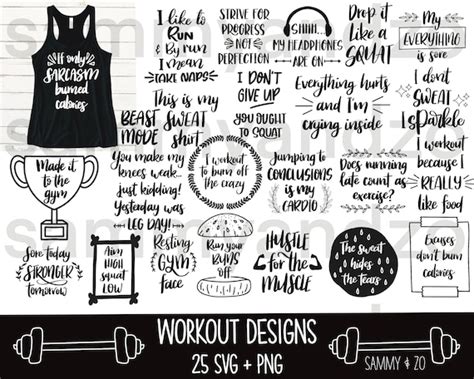 If only
SARCASM
burned
calories
I like to
RUN
& By run
I mean
TAKE NAPS
STRIVE FOR
PROGRESS
NOT
PERFECTION
SHHH...
MY HEADPHONES
ARE ON
Drop it
like a
SQUAT
My
EVERYTHING
is sore
This is my
BEAST SWEAT
MODE shirt
I DON'T
GIVE UP
YOU OUGHT
TO SQUAT
Everything hurts
and I'm
crying inside
I don't
SWEAT
I sparkle
Made it
to the
gym
You make my
knees weak...
just kidding!
Yesterday was
LEG DAY!
I workout
to burn off
the crazy
Jumping to
CONCLUSIONS
is my
CARDIO
Does running
late count as
exercise?
I workout
because I
REALLY
like food
Sore today
STRONGER
tomorrow
Aim
HIGH
squat
LOW
Resting
GYM
face
Run your
BUNS
off
HUSTLE
for the
MUSCLE
The sweat
hides
the tears
Excuses
don't burn
calories
WORKOUT DESIGNS
25 SVG + PNG
SAMMY & ZO